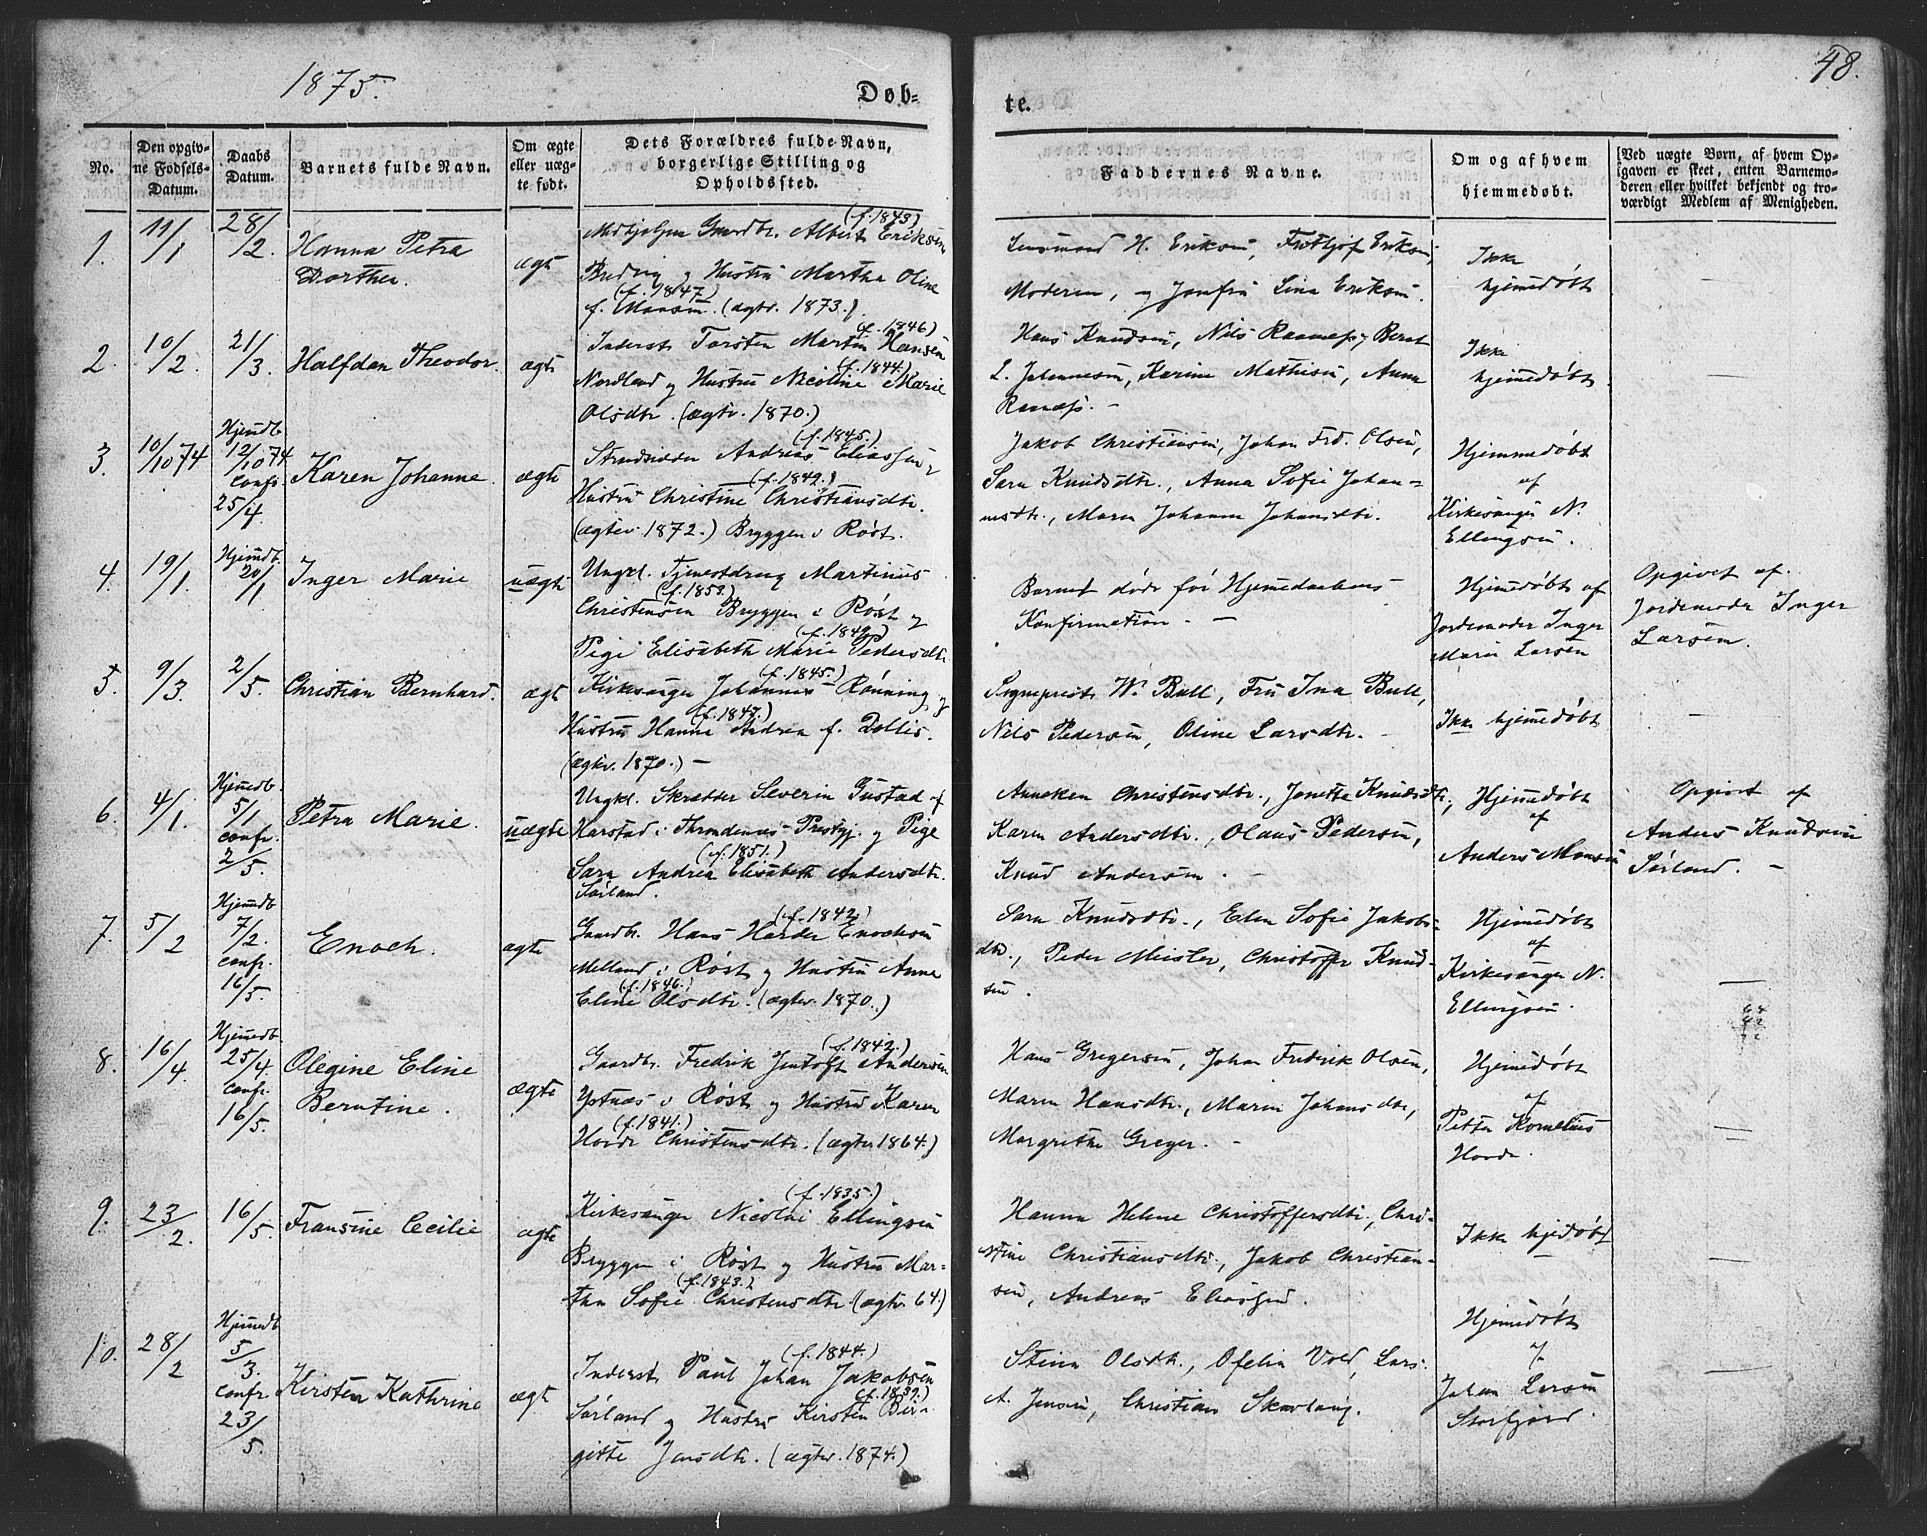 1875.
Døb=
te.
48.
No.
Den opgiv-
ne Fødsels-
Datum.
Daabs
Datum.
Barnets fulde Navn.
Om ægte
eller uæg-
te født.
Dets Forældres fulde Navn,
borgerlige Stilling og
Opholdssted.
Faddernes Navne.
Om og af hvem
hjemmedøbt.
Ved uægte Børn, af hvem Op-
gaven er skeet, enten Barnemo-
deren eller hvilket bekjendt og tro-
værdigt Medlem af Menigheden.
1.
11/1
28/2.
Hanna Petra
Dorthea.
ægte
(f. 1843)
Gaardbr. Albert Eriksen
og Hustru Martha Oline
(f. 1847)
f. Monsen. (ægtv. 1873.)
H. Eriksen, Fridtjof Eriksen,
Moderen, og Jomfru Lina Eriksen.
Ikke
hjemedøbt
—
2.
10/2.
21/3.
Halfdan Theodor.
ægte
(f. 1846)
Inderst Torsten Martin Hansen
(f. 1844.)
Nordland og Hustru Nicoline Marie
Olsdtr. (ægtv. 1870.)
Hans Knudsen, Nils Bernt
L. Johannesen, Karine Mathisen, Anna
Ikke
hjemedøbt
—
3.
10/10 74
Hjemdb.
12/10 74
confr.
25/4.
Karen Johanne.
ægte
(f. 1845.)
Strandsidder Andreas Eliassen og
(f. 1842.)
Hustru Christine Christiansdtr.
(ægtev. 1872.) Bryggen i Røst.
Jakob Christiansen, Johan Frd. Olsen,
Sara Knudsdtr., Anna Sofie Johan=
nesdtr., Maren Johanna Johansdtr.
Hjemmedøbt
af
Kirkesanger N.
Ellingsen.
4.
19/1.
Hjemdb.
20/1
Inger Marie
uægte
Ungkl. Tjenestdreng Martinus
(f. 1853.)
Christensen Bryggen i Røst og
(f. 1849.)
Pige Elisabeth Marie Pedersdtr.
Barnet døde før Hjemedaabens
Konfirmation. —
Hjemedøbt af
Jordemoder Inger
Marie Larsen
Opgivet af.
Jordemoder Inger
Larsen.
5.
9/3.
2/5.
Christian Bernhard.
ægte
(f. 1845.)
Kirkesanger Johannes Rønning og
(f. 1847.)
Hustru Hanna Andrea f. Dollis.
(ægtv. 1870.) —
Sogneprest W. Bull, Fru Ina Bull,
Nils Pedersen, Odine Larsdtr. —
Ikke hjemedøbt
—
6.
4/1.
Hjemedb.
5/1
confr.
2/5.
Petra Marie.
uægte
Ungkl. Skrædder Severin Gustad af
Harstad i Throndenæs Prestgj. og Pige
(f. 1851.)
Sara Andrea Elisabeth Andersdtr.
Sørland.
Anneken Christensdtr., Jonette Knudsdtr.,
Karen Andersdtr., Olaus Pedersen,
Knud Andersen. —
Hjemedøbt
af
Anders Monsen
Opgivet af
Anders Knudsen
Sørland. —
7.
5/2
Hjemdb.
7/2.
confr.
16/5.
Enoch.
ægte
(f. 1842)
Gaardbr. Hans Harder Enochsen
Melland i Røst og Hustru Anne
(f. 1846.)
Eline Olsdtr. (ægtev. 1870.)
Sara Knudsdtr., Elen Sofie Jakobs-
dtr., Peder Meisler, Christoffer Knud-
sen.
Hjemedøbt
af
Kirkesanger N.
Ellingsen.
—
8.
16/4.
Hjemedb.
25/4.
confr.
16/5.
Olegine Eline
Berntine.
ægte
(f. 1842.)
Gaardbr. Fredrik Jentoft Andersen
Ystnæs i Røst og Hustru Karen
(f. 1841.)
Hovde Christensdtr. (ægtev. 1864.)
Hans Gregersen, Johan Fredrik Olsen,
Maren Hansdtr., Maren Johansdtr.,
Margrethe Greger. —
Hjemedøbt
af
Petter Kornelius
Hovde.
9.
23/2.
16/5.
Fransine Cecilie
ægte
(f. 1835.)
Kirkesanger Nicolai Ellingsen
Bryggen i Røst og Hustru Mar-
(f. 1843.)
tha Sofie Christensdtr. (ægtv. 64)
Hanna Helene Christoffersdtr., Chri-
stine Christiansdtr., Jakob Christian-
sen, Andreas Eliassen.
Ikke hjedøbt
—
10.
28/2
Hjemedb
5/3.
confr.
23/5.
Kirsten Kathrine
ægte
(f. 1844.)
Inderst Paul Johan Jakobsen
(f. 1839.)
Sørland og Hustru Kirsten Bir-
gitte Jensdtr. (ægtev. 1874.)
Stina Olsdtr., Ofelia Vold, Lars
A. Jensen, Christian Skavlang.
Hjemedøbt
af
Johan Larsen
Storfjord.
—